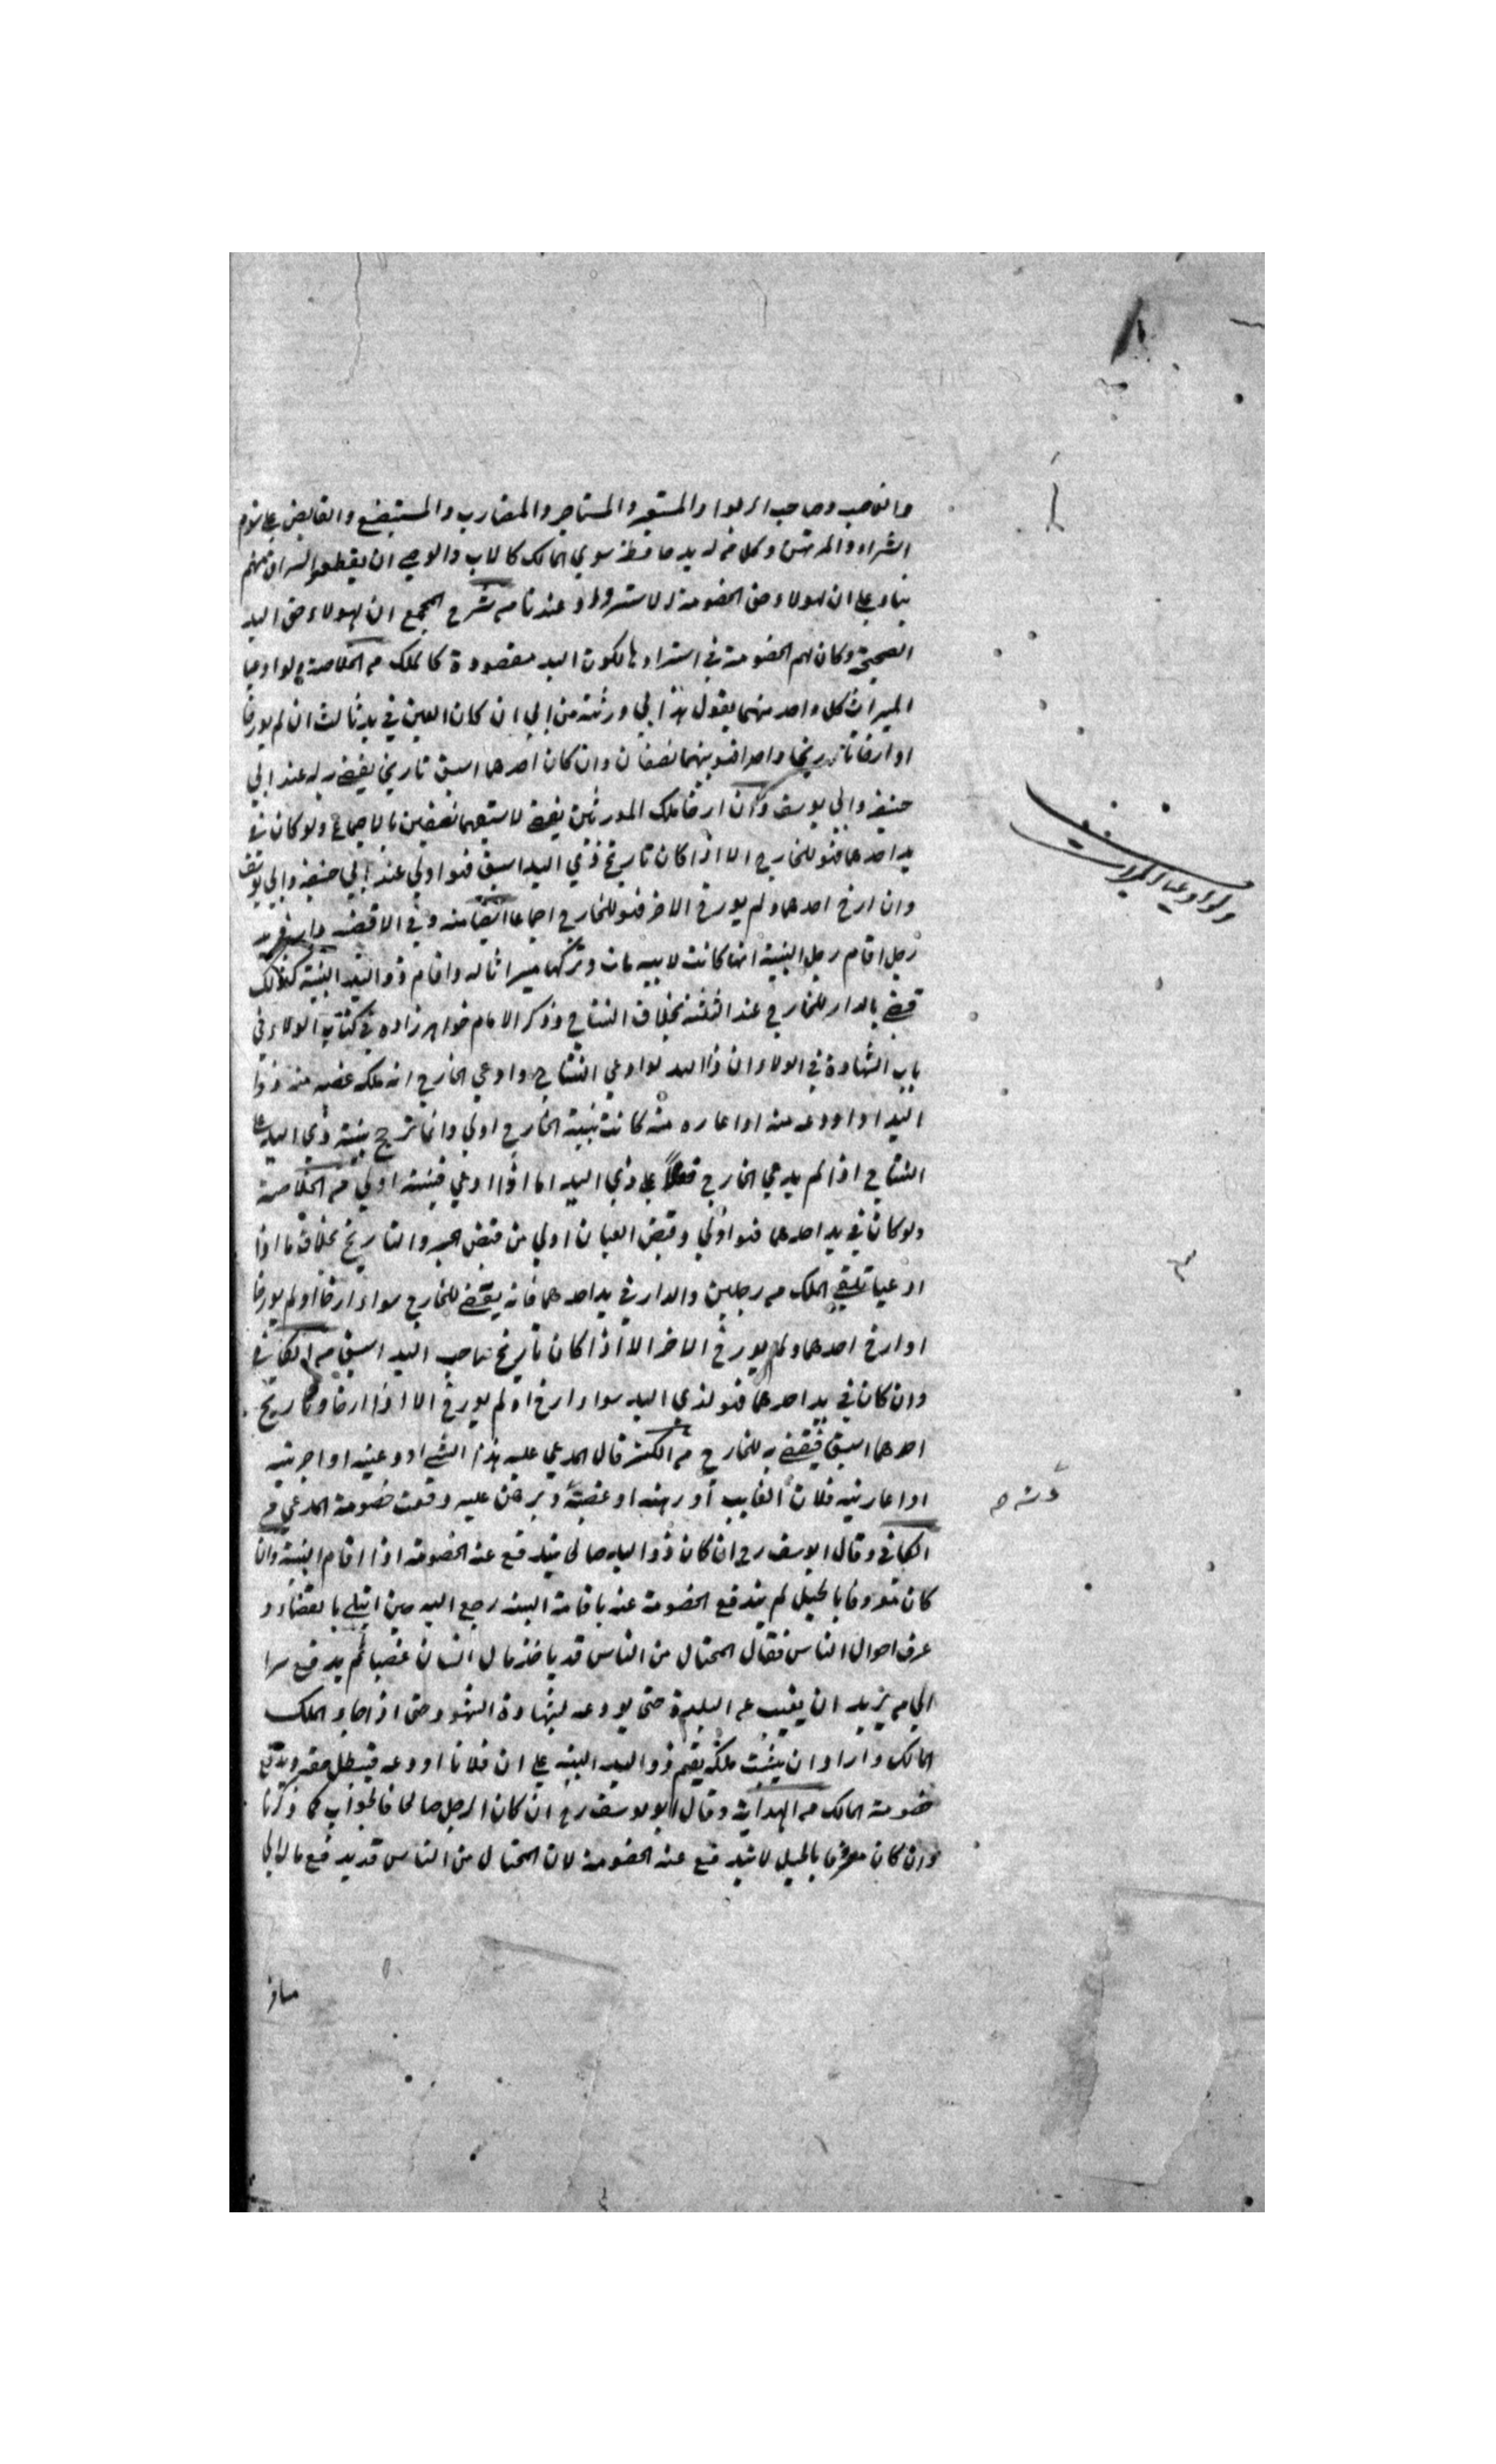 والغاصب وصاحب الربوا والمستعير والمستاجر والمضارب والمستبضع والقابض على سوم
الشراء والمرتهن وكل من له يد حافظة سوي المالك كالاب والوصي ان يقطعوا السراق منهم
بناء على ان لهولاء حق الخصومة لاسترداد وعندنا من شرح المجمع ان لهولاء حق اليد
الصحيحة وكان لهم الخصومة في استردادها لكون اليد مقصودة كالملك من الخلاصة ولو ادعيا
الميراث كل واحد منهما يقول هذا لي ورثته من ابي ان كان العين في يد ثالث ان لم يورخا
او ارخا تاريخا واحدا فهو بينهما نصفان وان كان احدهما اسبق تاريخ يقضي به له عند ابي
حنيفة وابي يوسف وان ارخا ملك المورثين يقضي لاسبقهما نصفين بالاجماع ولو كان في
يد احدهما فهو للخارج الا اذا كان تاريخ ذي اليد اسبق فهو اولي عند ابي حنيفة وابي يوسف
وان ارخ احدهما ولم يورخ الاخر فهو للخارج اجماعا ايضا منه وفي الاقضية دار في يد
رجل اقام رجل البينة انها كانت لابيه مات وتركها ميراثا له واقام ذو اليد البينة كذلك
قضي بالدار للخارج عند الثلثة بخلاف النتاج وذكر الامام خواهر زاده في كتاب الولاء في
باب الشهادة في الولاء ان ذا اليد لو ادعي النتاج وادعي الخارج انه ملكه غصبه منه ذو
اليد او اودعه منه او اعاره منه كانت بينة الخارج اولي وانما ترجح بينة ذي اليد على
النتاج اذا لم يدعي الخارج فعلا على ذي اليد اما اذا ادعي فبينته اولي من الخلاصة
ولو كان في يد احدهما فهو اولي وقبض العيان اولي من قبض الخبر والتاريخ بخلاف ما اذا
ادعيا تلقي الملك من رجلين والدار في يد احدهما فانه يقضي للخارج سواء ارخا او لم يورخا
او ارخ احدهما ولم يورخ الاخر الا اذا كان تاريخ صاحب اليد اسبق من الكافي
وان كان في يد احدهما فهو لذي اليد سواء ارخ او لم يورخ الا اذا ارخا وتاريخ
احدهما اسبق فيقضي به للخارج من الكنز قال المدعي عليه هذا الشي اودعنيه او اجرنيه
او اعارنيه فلان الغايب او رهنه او غصبته وبرهن عليه دفعت خصومة المدعي من
الكافي وقال ابويوسف رح ان كان ذو اليد صالحا يندفع عنه الخصومة اذا اقام البينة وان
كان معروفا بالحيل لم يندفع الخصومة عنه باقامة البينة رجع اليه حين ابتلي بالقضاء و
عرف احوال الناس فقال المحتال من الناس قد ياخذ مال انسان غصبا ثم يدفع سرا
الي من يريد ان يغيب عن البلدة حتي يودعه بشهادة الشهود حتي اذا جاء الملك
المالك واراد ان يثبت ملكه يقيم ذو اليد البينة على ان فلانا اودعه فيبطل حقه ويدفع
خصومة المالك من الهداية وقال ابو يوسف رح ان كان الرجل صالحا فالجواب كما ذكرنا
وان كان معروفا بالحيل لا تندفع عنه الخصومة لان المحتال من الناس قد يدفع ماله الي
مسافر